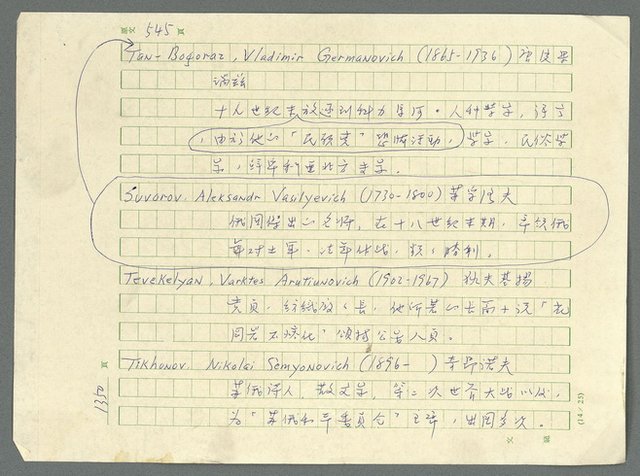 原文 545 頁
Tan-Bogoraz, Vladimir Germanovich (1865-1936)
十八世紀末放逐到科力馬河。人種學家,語言
,由於他的「民族」恐怖活動,學家,民俗學
家,
Suvorov, Aleksandr Vasilyevich (1730-1800) 蘇沃洛夫
俄國傑出的名將,在十八世紀末期,率領俄
軍對土軍、法軍作戰,頗多勝利。
Tevekelyan, Varktes Arutiunovich (1902-1967)
黨員,紡織廠長,他所著的長篇小說「花
崗岩不熔化」頌揚公安人員。
Tikhonov, Nikolai Semyonovich (1896- )
蘇俄詩人,散文家,第二次世界大戰以後,
為「蘇俄和平委員會」主席,出國多次。
1350 頁
(14/25)